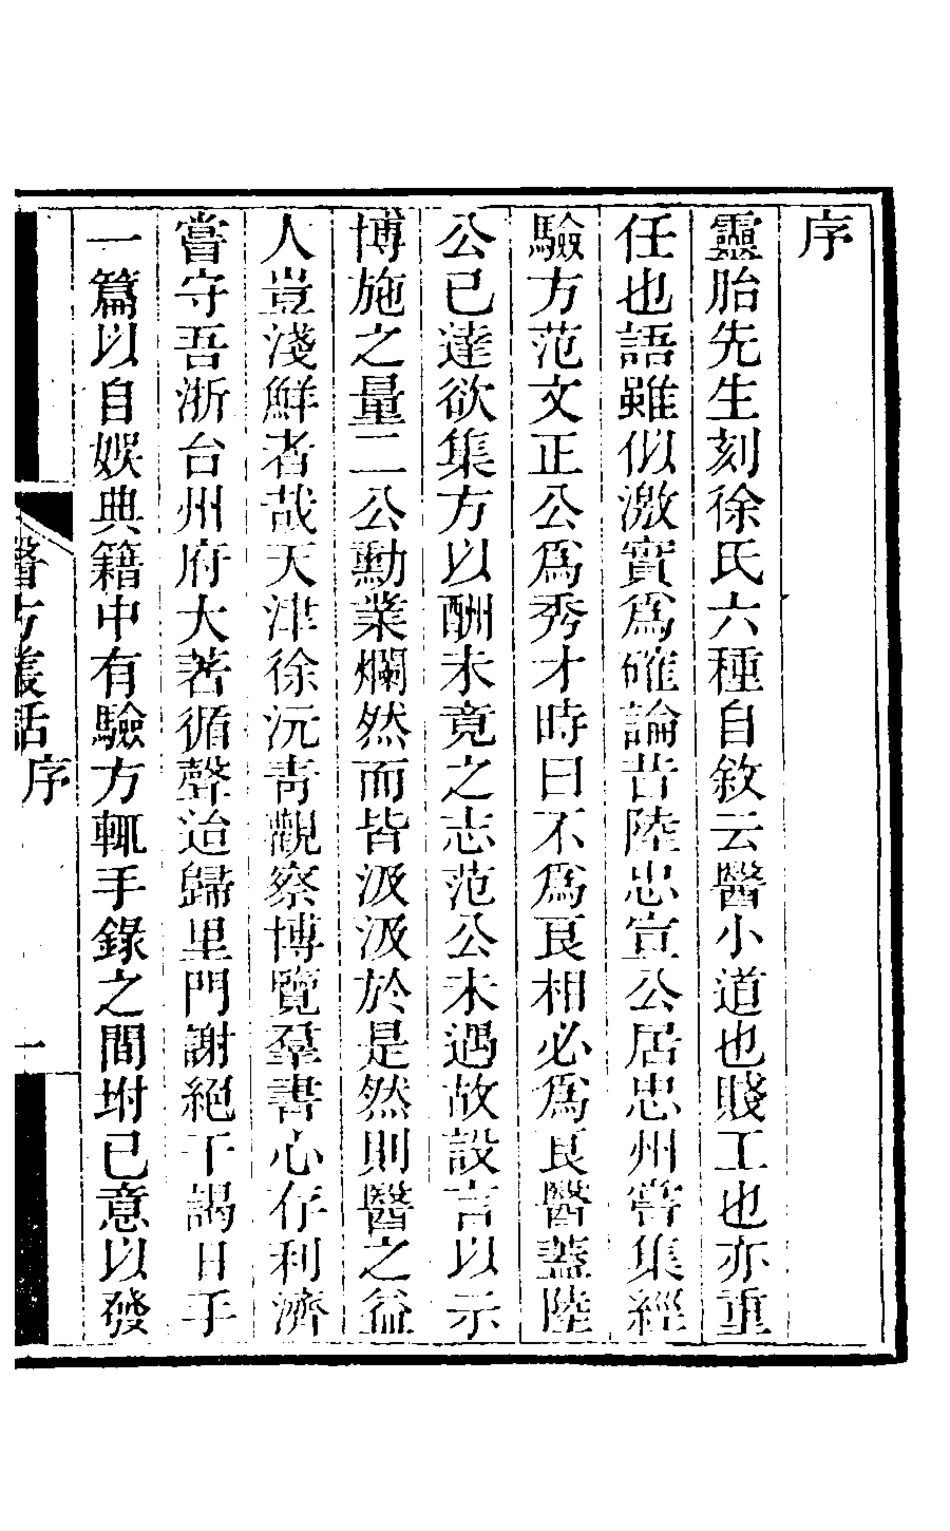 序
靈胎先生刻徐氏六種自敘云醫小道也賤工也亦重
任也語雖似激實爲確論昔陸忠宣公居忠州嘗集經
驗方范文正公爲秀才時曰不爲良相必爲良醫蓋陸
公已達欲集方以酬未竟之志范公未遇故設言以示
博施之量二公勳業爛然而皆汲汲於是然則醫之益
人豈淺鮮者哉天津徐沅青觀察博覽羣書心存利濟
嘗守吾浙台州府大著循聲迨歸里門謝絕干謁日手
一篇以自娛典籍中有驗方輒手錄之間坿已意以發
醫方叢話 序 一